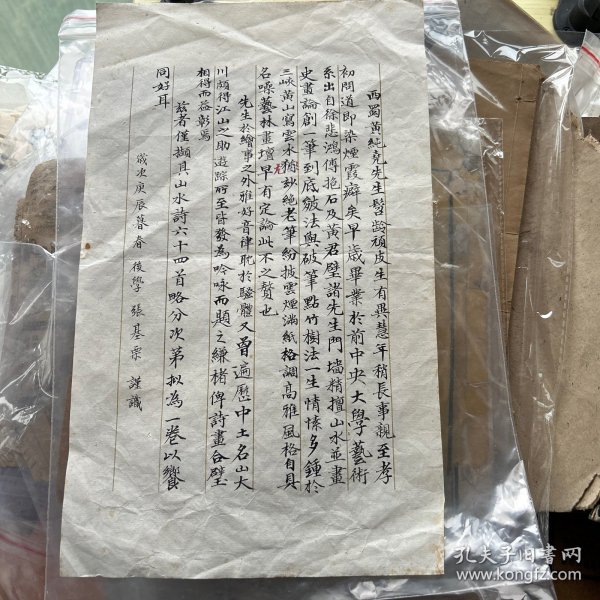 西蜀黃純堯先生髫齡頑皮生有異慧年稍長事親至孝
初問道即染煙霞癖矣早歲畢業於前中央大學藝術
系出自徐悲鴻傅抱石及黃君璧諸先生門墻精擅山水並畫
史畫論創一筆到底皴法與破筆點竹樹法一生情愫多鍾於
三峽黃山寫雲水猶妙絕老筆紛披雲煙滿紙格調高雅風格自具
名噪藝林畫壇早有定論此不之贅也
先生於繪事之外雅好音律耽於騷體又曾遍歷中土名山大
川頗得江山之助遊踪所至皆發為吟咏而題之縑楮俾詩畫合璧
相得而益彰焉
茲者僅擷其山水詩六十四首略分次第拟為一卷以饗
同好耳
歲次庚辰暮春 後學 張基栗 謹識
孔夫子旧书网
www.kongfz.com